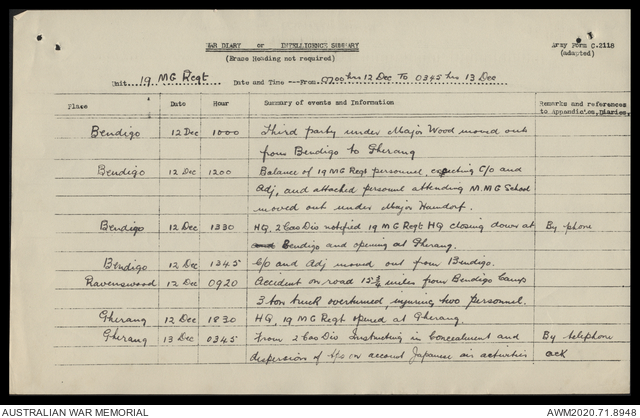 WAR DIARY or INTELLIGENCE SUMMARY
(Erase Heading not required)
Army Form C.2118
(adapted)
Unit 19 MG Regt Date and Time --- From 0700 hrs 12 Dec To 0345 hrs 13 Dec
Place Date Hour Summary of events and Information Remarks and references to appendices, Diaries.
Bendigo 12 Dec 1000 Third party under Major Wood moved out
from Bendigo to Gherang
Bendigo 12 Dec 1200 Balance of 19 MG Regt personnel, excepting C/O and
Adj, and attached personnel attending M.MG School
moved out under Major
Bendigo 12 Dec 1330 HQ, 2 Cav Div notified 19 MG Regt HQ closing down at By phone
Bendigo and opening at Gherang.
Bendigo 12 Dec 1345 C/O and Adj moved out from Bendigo.
Ravenswood 12 Dec 0920 Accident on road 15¾ miles from Bendigo Camp
3 ton truck overturned, injuring two personnel.
Gherang 12 Dec 1830 HQ, 19 MG Regt opened at Gherang.
Gherang 13 Dec 0345 From 2 Cav Div Instructing in Concealment and By telephone
dispersion of on account Japanese air activities ack
AUSTRALIAN WAR MEMORIAL
AWM2020.71.8948